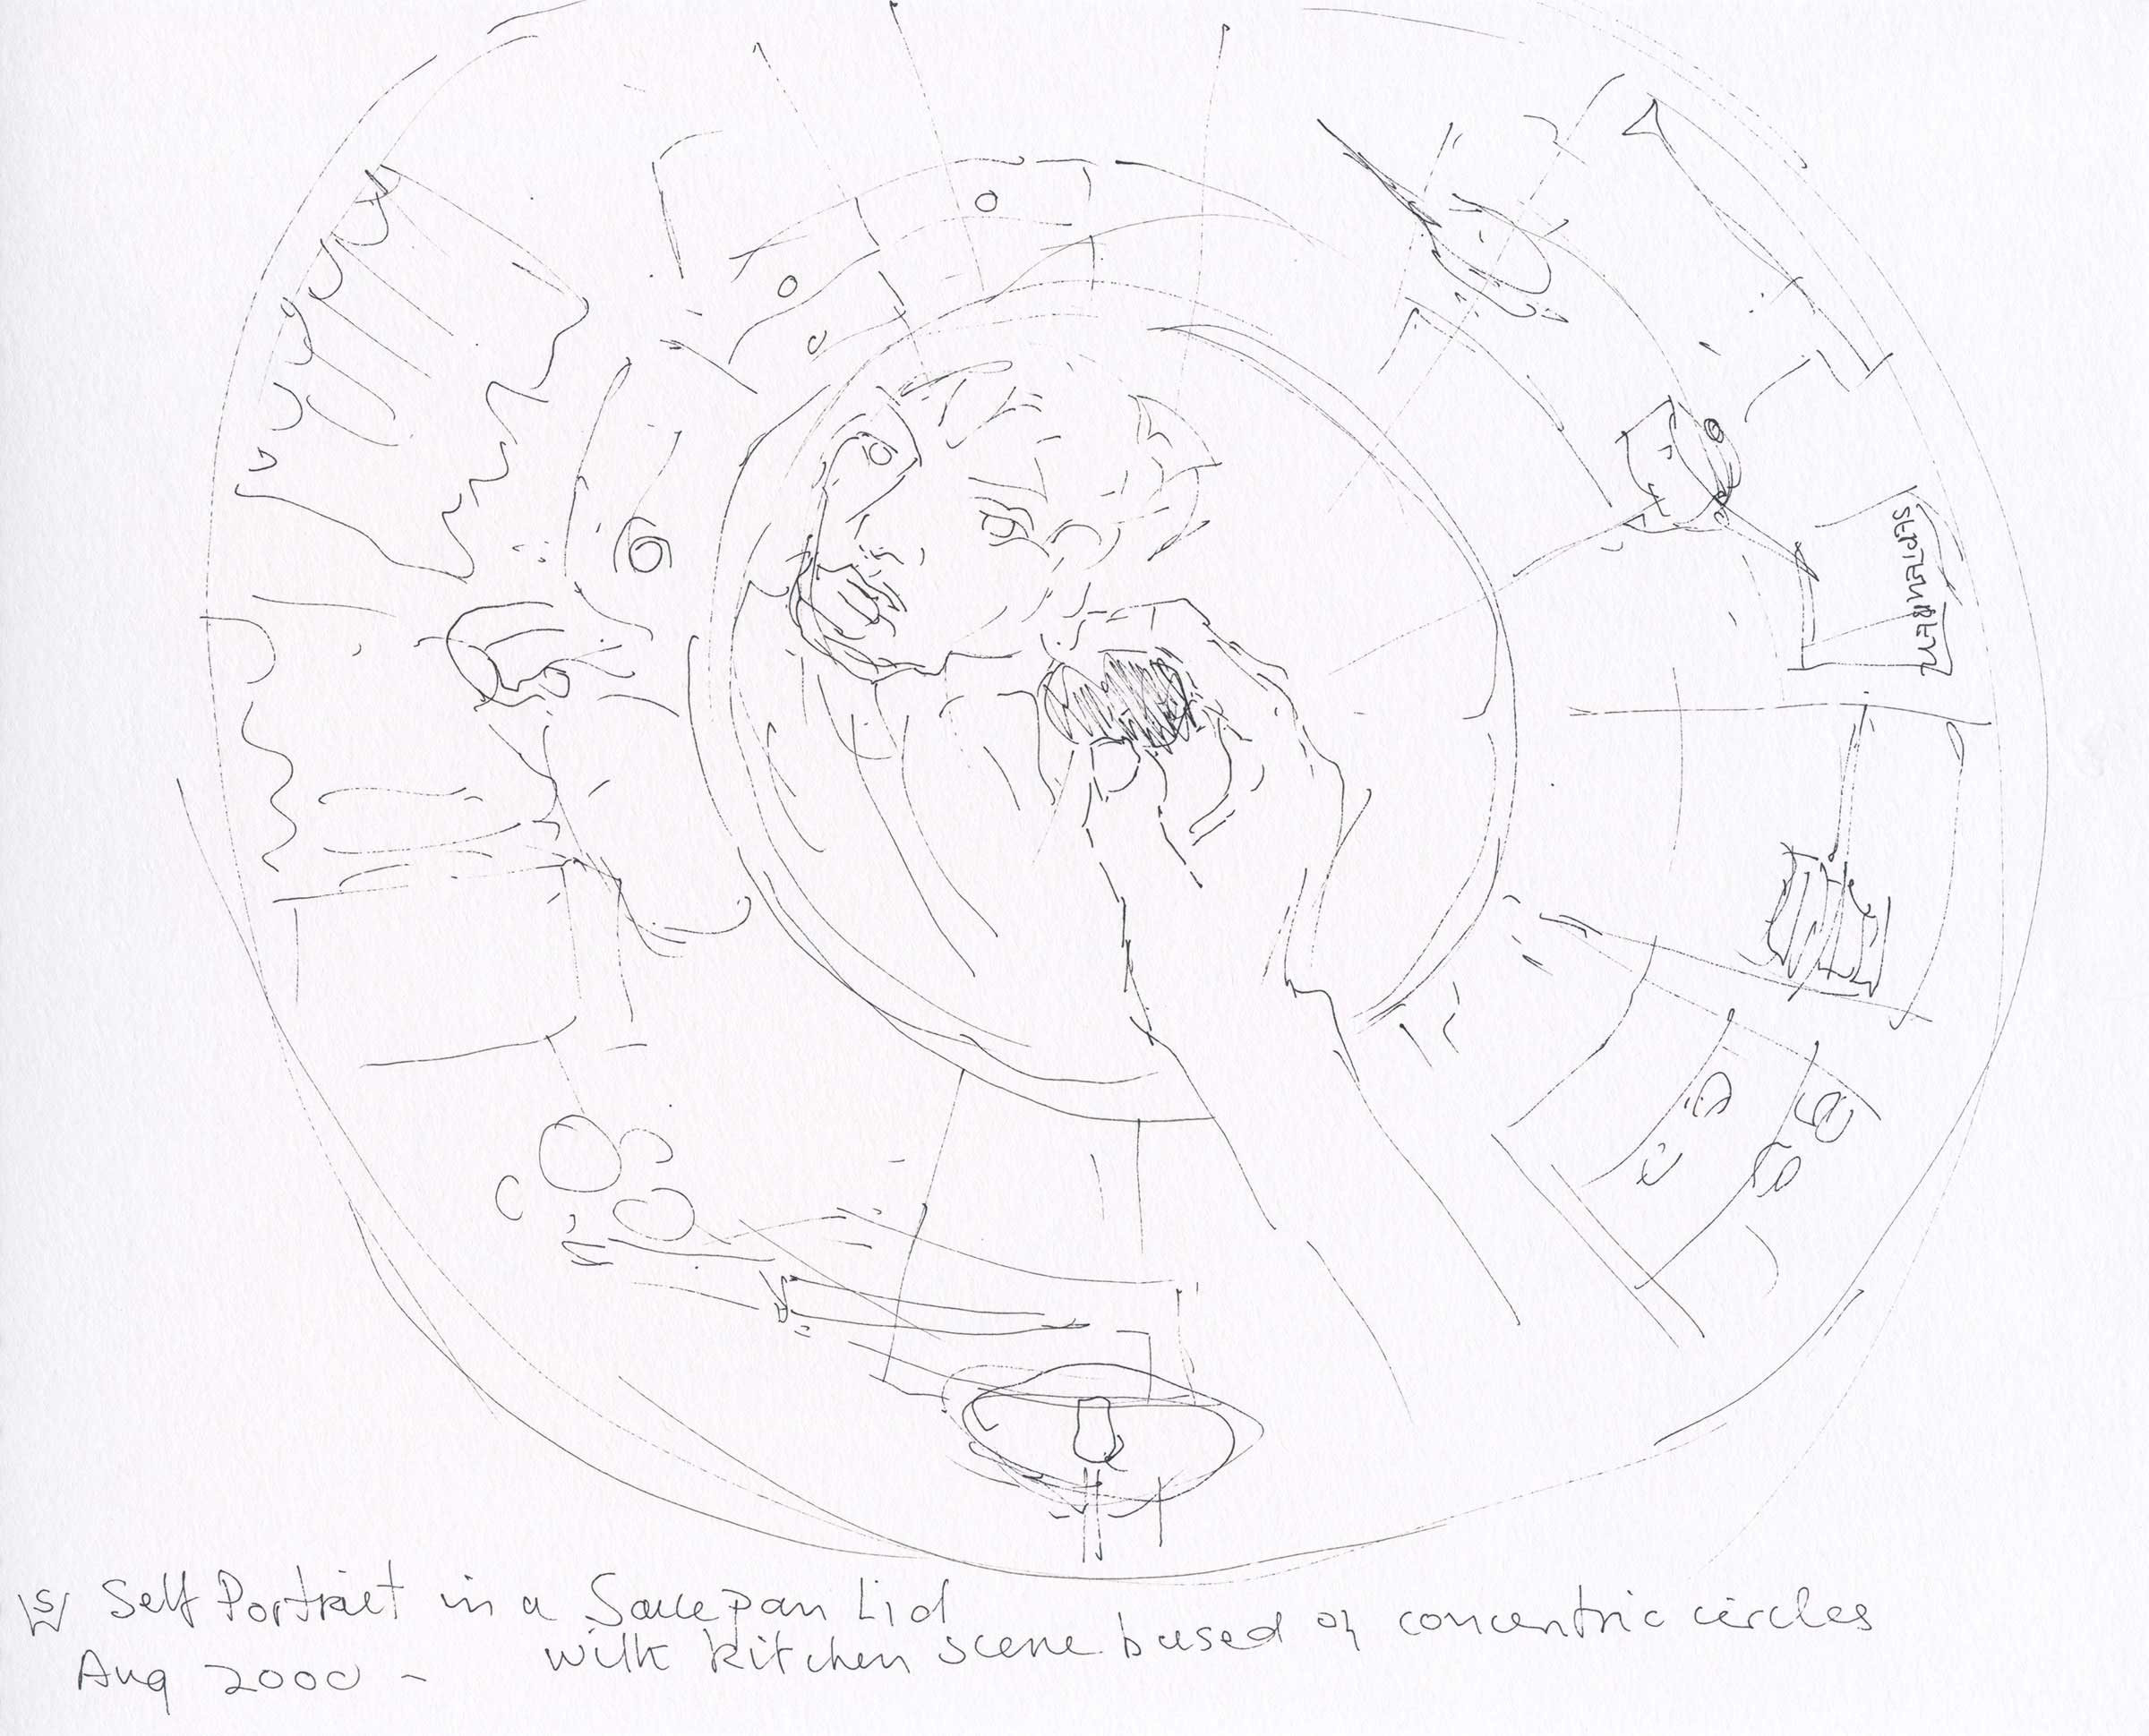 Self Portrait in a Saucepan Lid
with kitchen scene based on concentric circles
Aug 2000 -